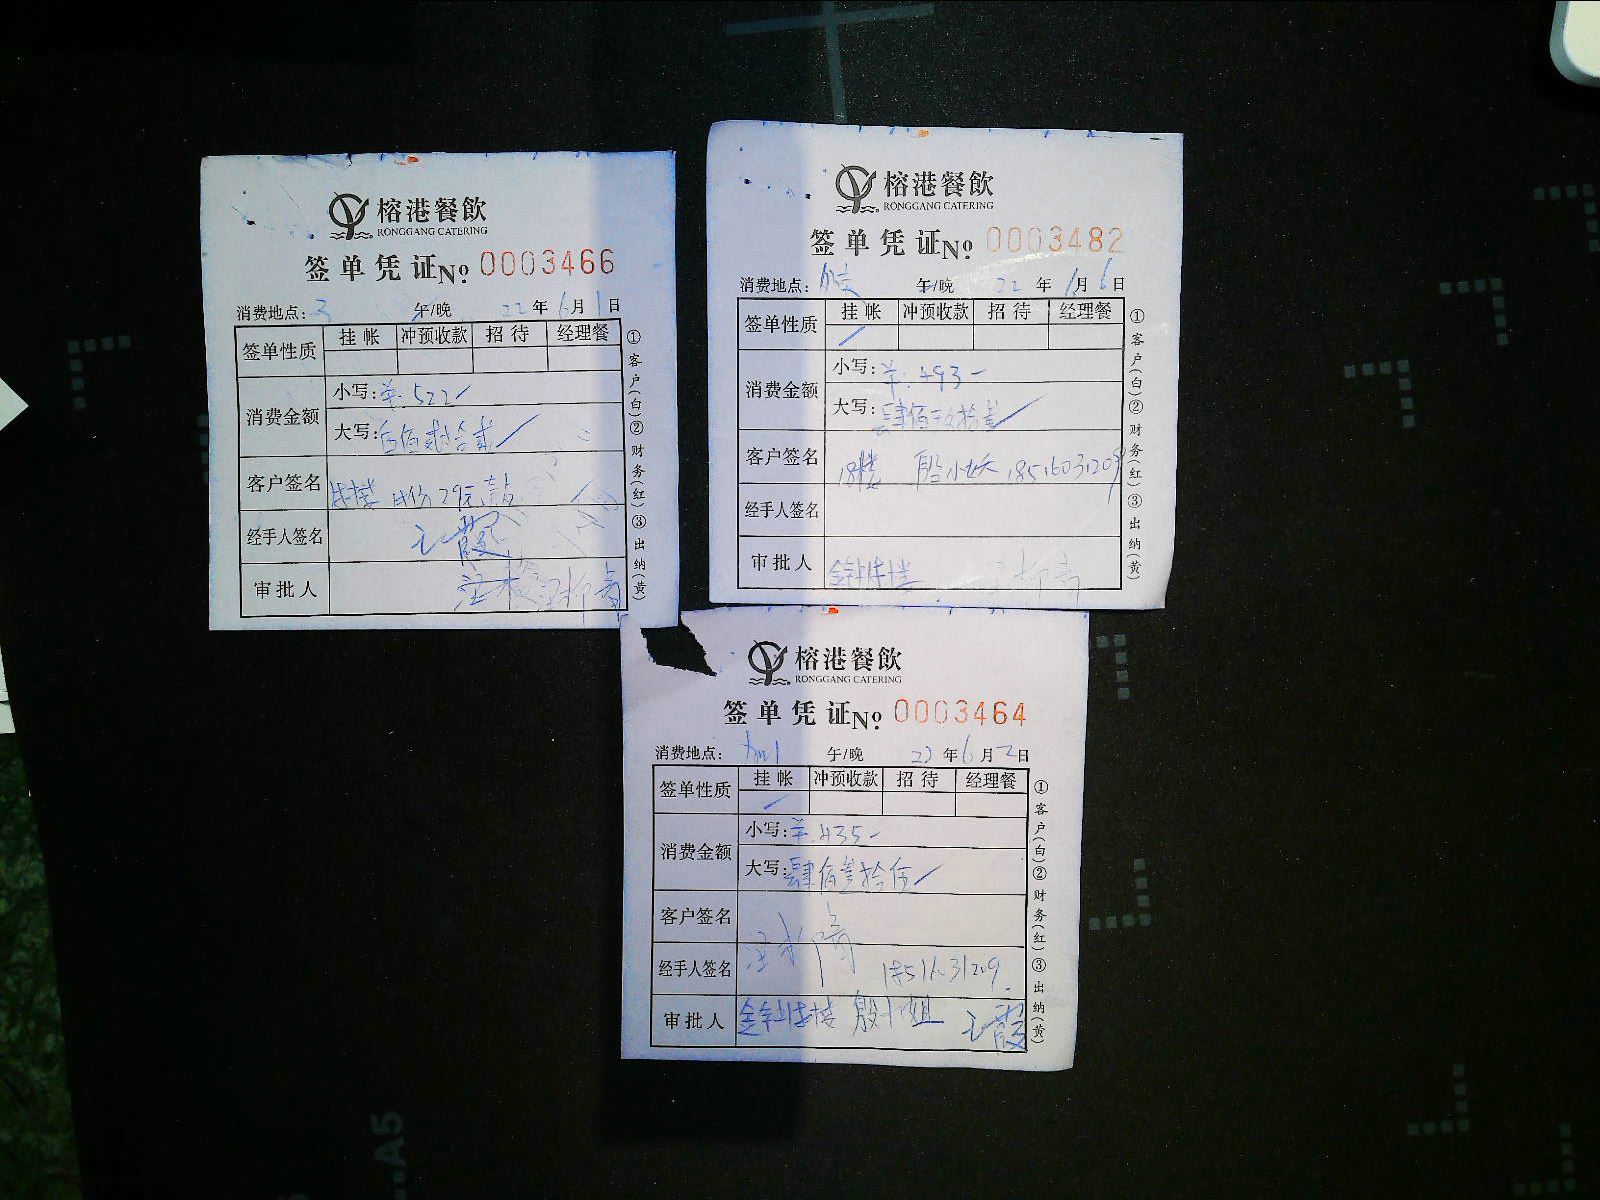 榕港餐飲
RONGGANG CATERING
签单凭证No. 0003466
消费地点: 午/晚 22年6月1日
签单性质 挂帐 冲预收款 招待 经理餐
消费金额 小写:¥:522
大写:伍佰贰拾贰
客户签名 29元
经手人签名 霞
审批人
①客户(白)②财务(红)③出纳(黄)
榕港餐飲
RONGGANG CATERING
签单凭证No. 0003482
消费地点: 午/晚 22年6日
签单性质 挂帐 冲预收款 招待 经理餐
消费金额 小写:¥:493
大写:肆佰玖拾叁
客户签名 18楼 殷小 18516031209
经手人签名
审批人
①客户(白)②财务(红)③出纳(黄)
榕港餐飲
RONGGANG CATERING
签单凭证No. 0003464
消费地点: 午/晚 年6月2日
签单性质 挂帐 冲预收款 招待 经理餐
消费金额 小写:¥:435
大写:肆佰叁拾伍
客户签名
经手人签名
审批人 殷小姐 霞
①客户(白)②财务(红)③出纳(黄)
A5